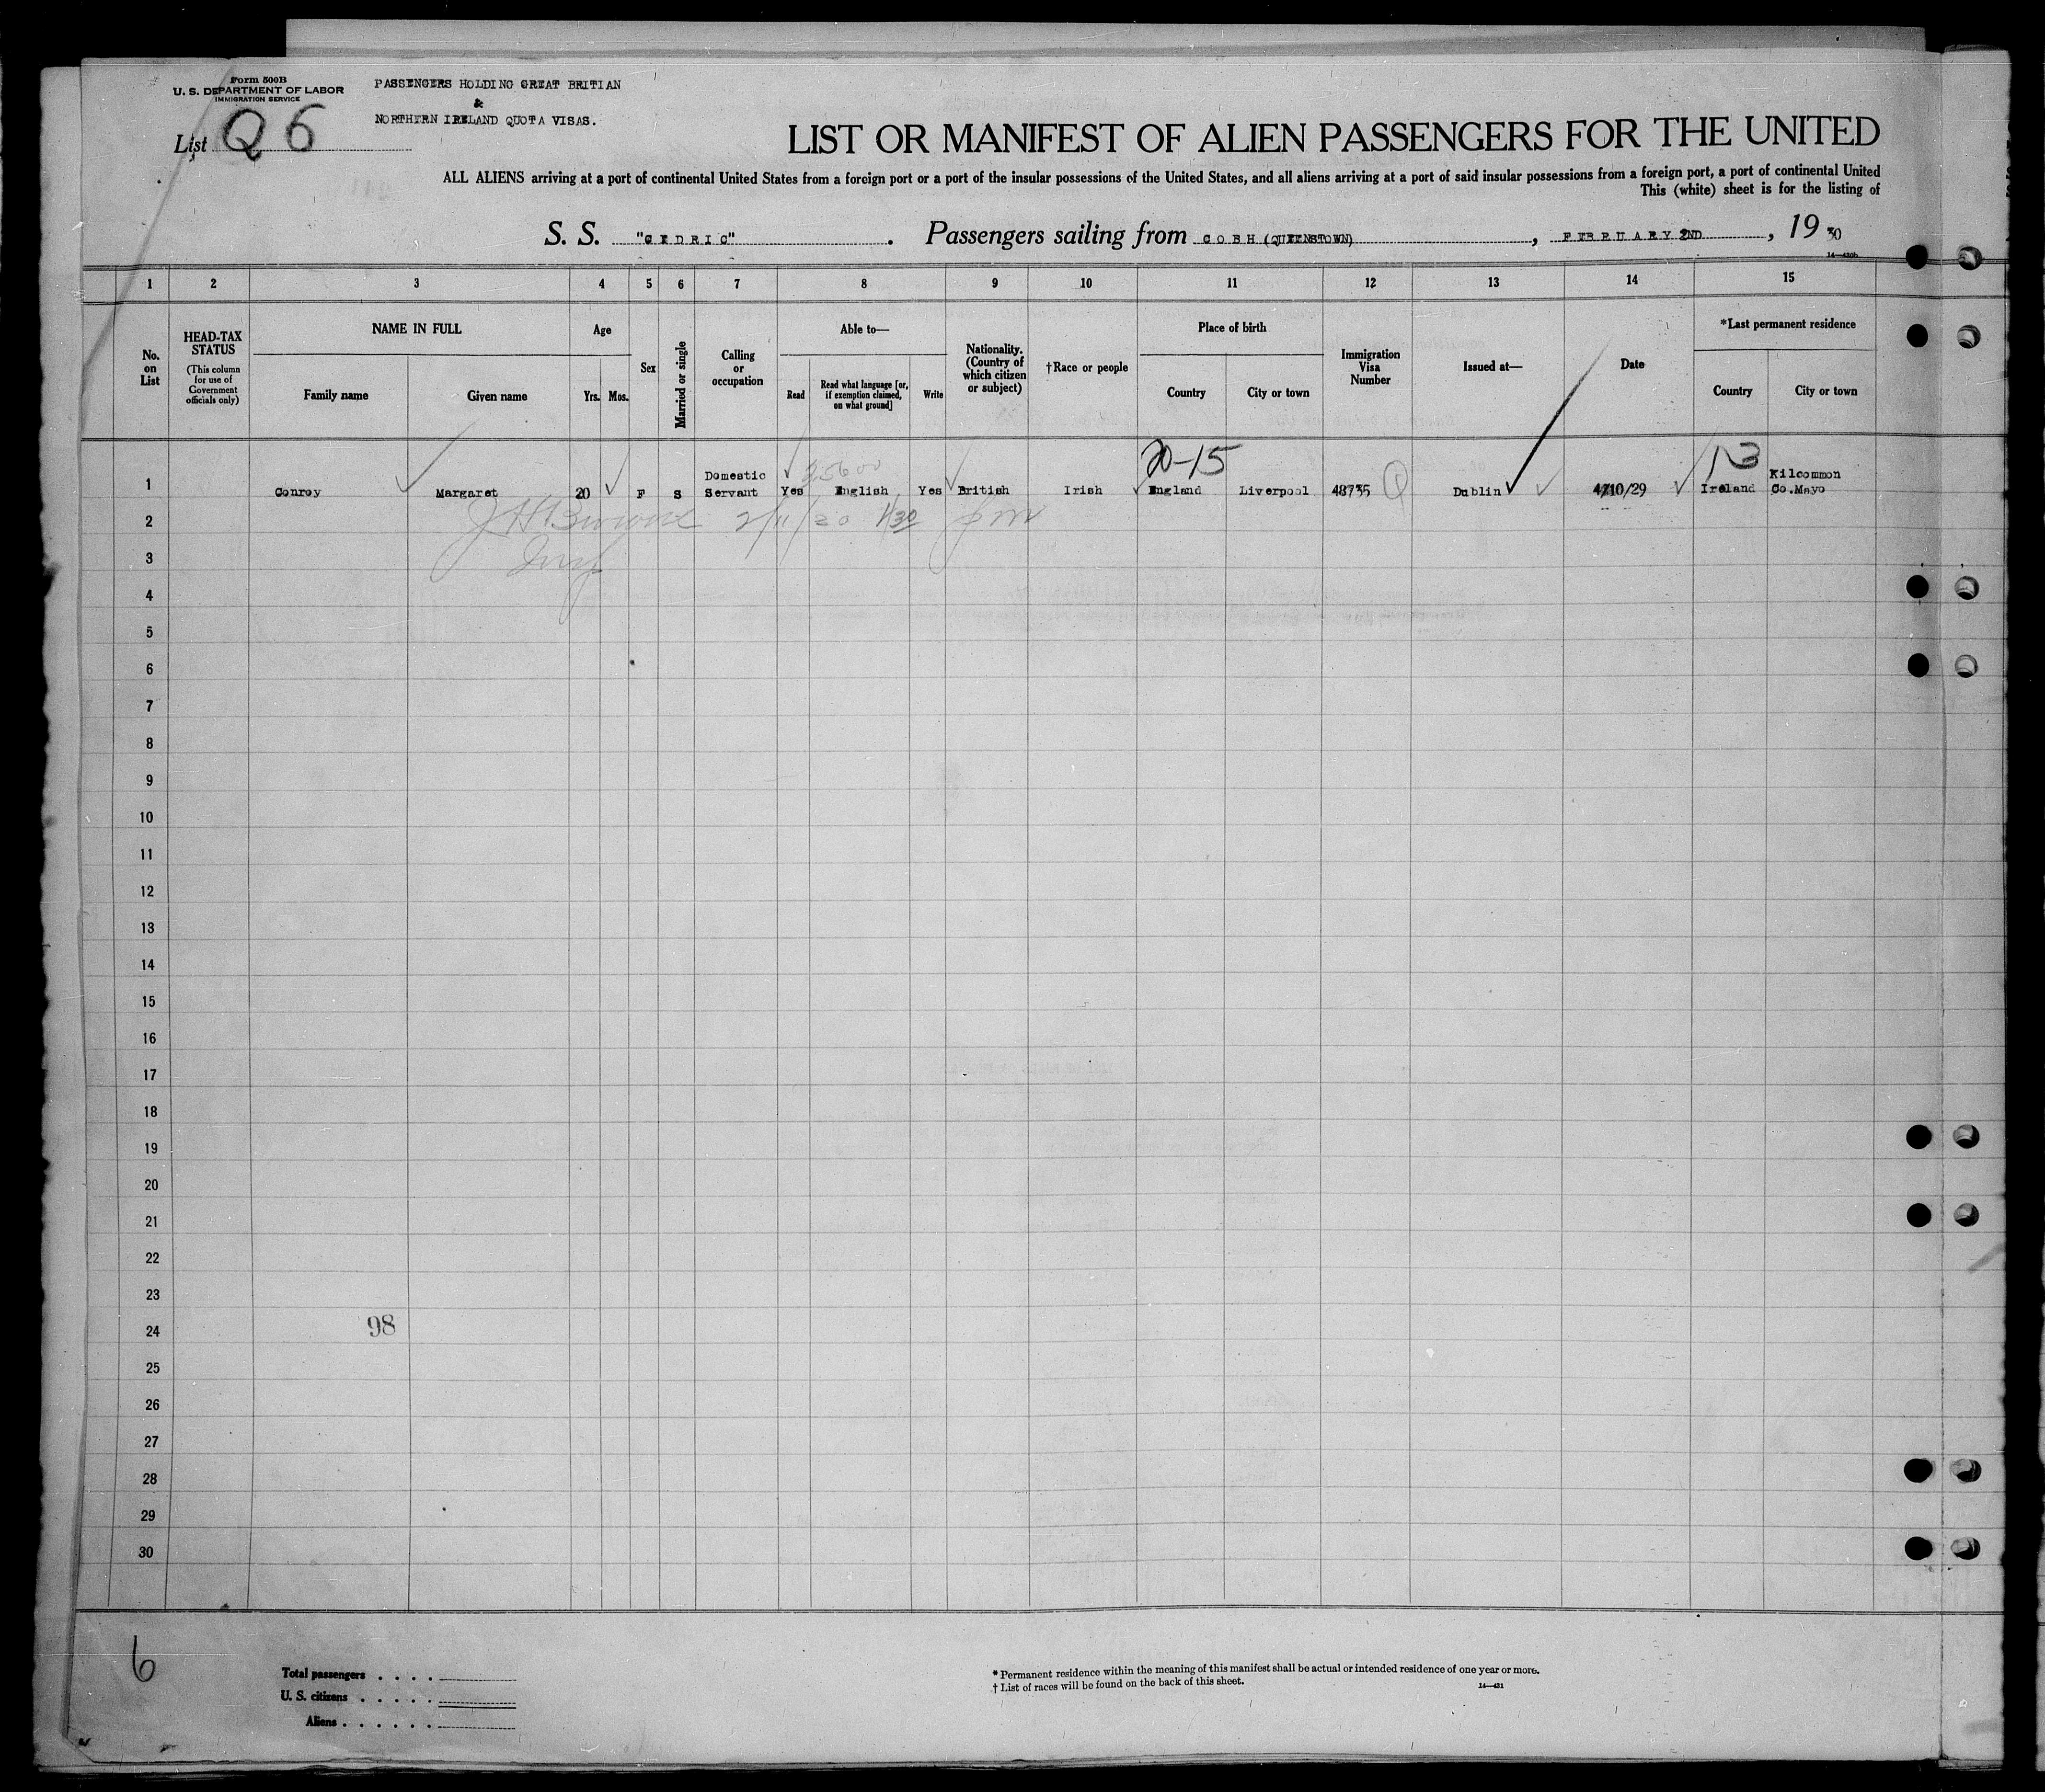 Form 500B
U. S. DEPARTMENT OF LABOR
IMMIGRATION SERVICE
PASSENGERS HOLDING GREAT BRITIAN
&
NORTHERN IRELAND QUOTA VISAS.
List Q 6
LIST OR MANIFEST OF ALIEN PASSENGERS FOR THE UNITED
ALL ALIENS arriving at a port of continental United States from a foreign port or a port of the insular possessions of the United States, and all aliens arriving at a port of said insular possessions from a foreign port, a port of continental United
This (white) sheet is for the listing of
S. S. "CEDRIC" . Passengers sailing from COBH (QUEENSTOWN) , FEBRUARY 2ND , 19 30
1 2 3 4 5 6 7 8 9 10 11 12 13 14 15
No. on List
HEAD-TAX STATUS
(This column for use of Government officials only)
NAME IN FULL
Family name Given name
Age
Yrs. Mos.
Sex
Married or single
Calling or occupation
Able to—
Read
Read what language [or, if exemption claimed, on what ground]
Write
Nationality. (Country of which citizen or subject)
†Race or people
Place of birth
Country City or town
Immigration Visa Number
Issued at—
Date
*Last permanent residence
Country City or town
20-15 13
1 Conroy Margaret 20 F S Domestic Servant Yes English Yes British Irish England Liverpool 48735 Q Dublin 4/10/29 Ireland Kilcommon Co.Mayo
2 2/11/30 1/30 pm
3
4
5
6
7
8
9
10
11
12
13
14
15
16
17
18
19
20
21
22
23
24 98
25
26
27
28
29
30
6
Total passengers . . . .
U. S. citizens . . . . .
Aliens . . . . . .
* Permanent residence within the meaning of this manifest shall be actual or intended residence of one year or more.
† List of races will be found on the back of this sheet.
14—431